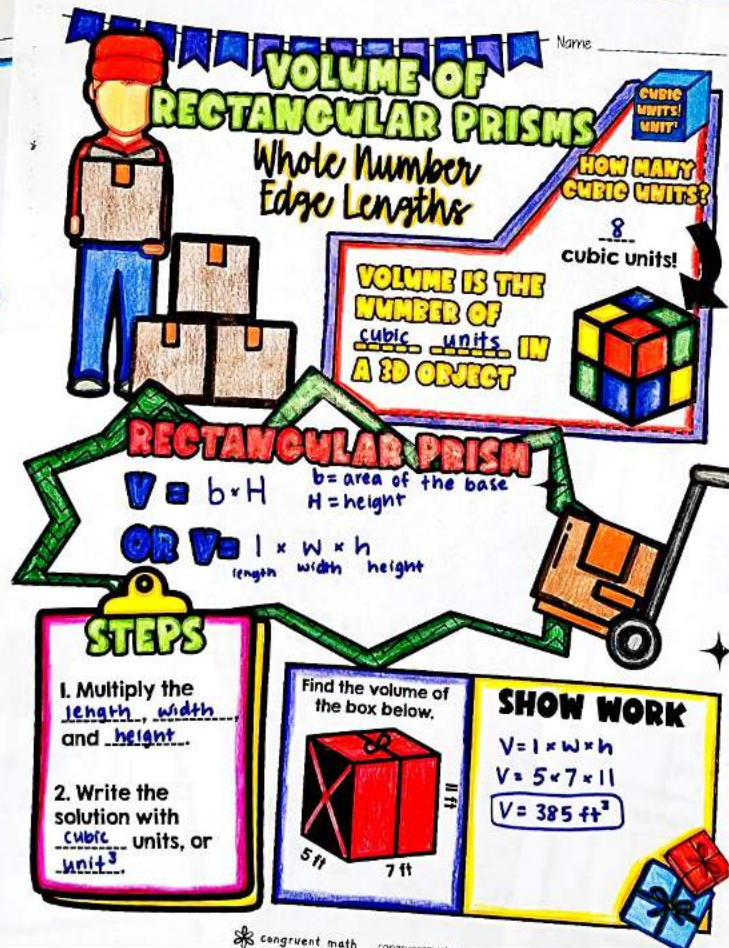 Name
VOLUME OF
RECTANGULAR PRISMS
Whole Number
Edge Lengths
CUBIC
UNITS!
UNIT³
HOW MANY
CUBIC UNITS?
8
cubic units!
VOLUME IS THE
NUMBER OF
cubic units IN
A 3D OBJECT
RECTANGULAR PRISM
V = b × H
b = area of the base
H = height
OR V = l × w × h
length width height
STEPS
1. Multiply the
length, width,
and height.
2. Write the
solution with
cubic units, or
unit³.
Find the volume of
the box below.
11 ft
5 ft
7 ft
SHOW WORK
V = l × w × h
V = 5 × 7 × 11
V = 385 ft³
congruent math